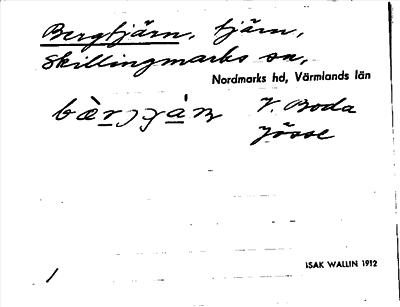 Bergtjärn, tjärn,
Skillingmarks sn,
Nordmarks hd, Värmlands län
V. Boda
Jösse
ISAK WALLIN 1912
1